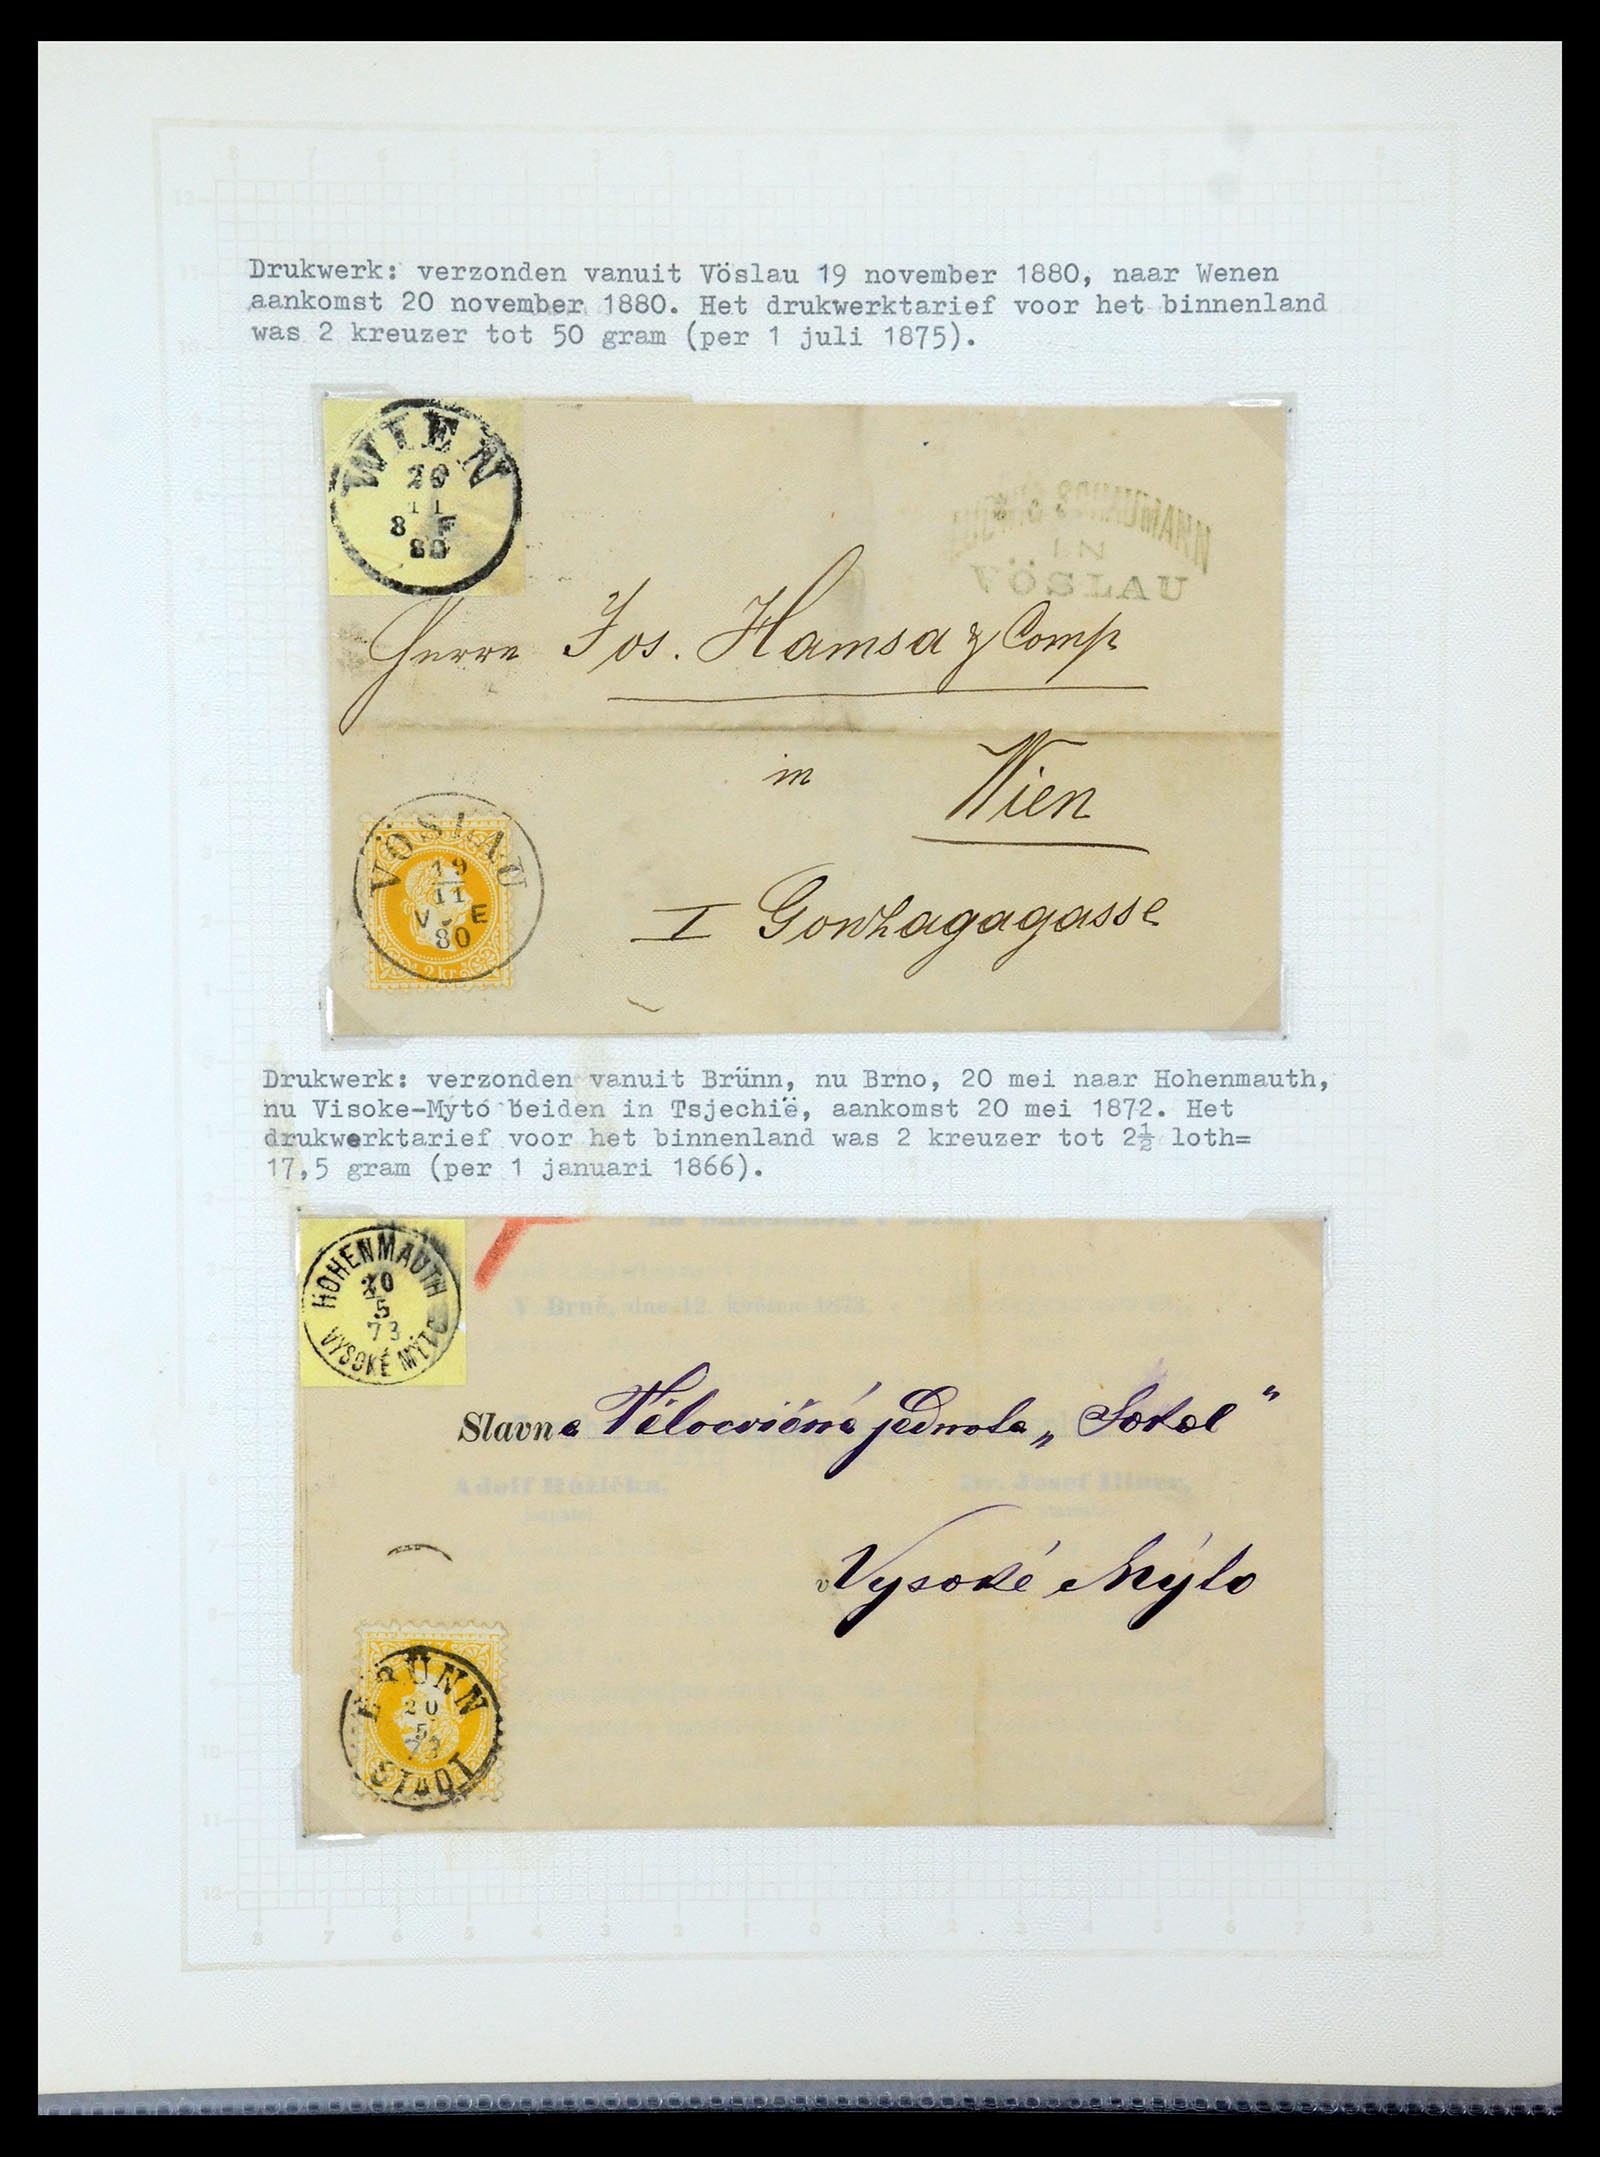 Drukwerk: verzonden vanuit Vöslau 19 november 1880, naar Wenen
aankomst 20 november 1880. Het drukwerktarief voor het binnenland
was 2 kreuzer tot 50 gram (per 1 juli 1875).
WIEN
20
11
8 F
80
IN
VÖSLAU
Herrn Jos. Hamsa & Comp
in Wien
I Gonzagagasse
VÖSLAU
19
11
V E
80
2 kr.
Drukwerk: verzonden vanuit Brünn, nu Brno, 20 mei naar Hohenmauth,
nu Visoke-Mytó beiden in Tsjechië, aankomst 20 mei 1872. Het
drukwerktarief voor het binnenland was 2 kreuzer tot 2½ loth=
17,5 gram (per 1 januari 1866).
HOHENMAUTH
20
5
73
VYSOKÉ MÝTO
V Brně, dne 12. května 1873.
Slavné Tělocvičná jednota „Sokol"
Adolf Růžička,
Dr. Josef Illner,
starosta.
v Vysoké Mýto
BRÜNN
20
5
73
STADT